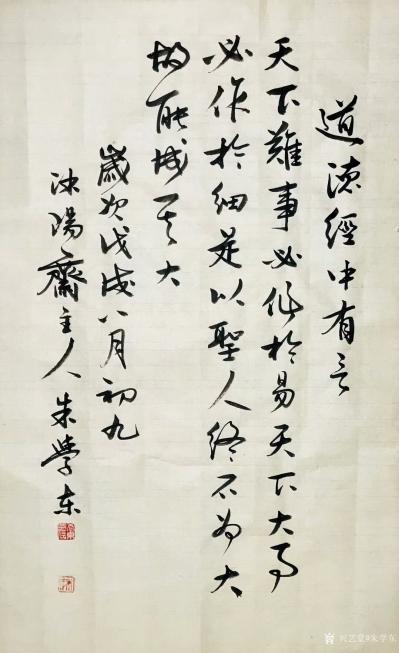 道德經中有言
天下難事必作於易天下大事
必作於細是以聖人終不為大
故能成其大
歲次戊戌八月初九
沭陽齋主人朱學東
兴艺堂@朱学东